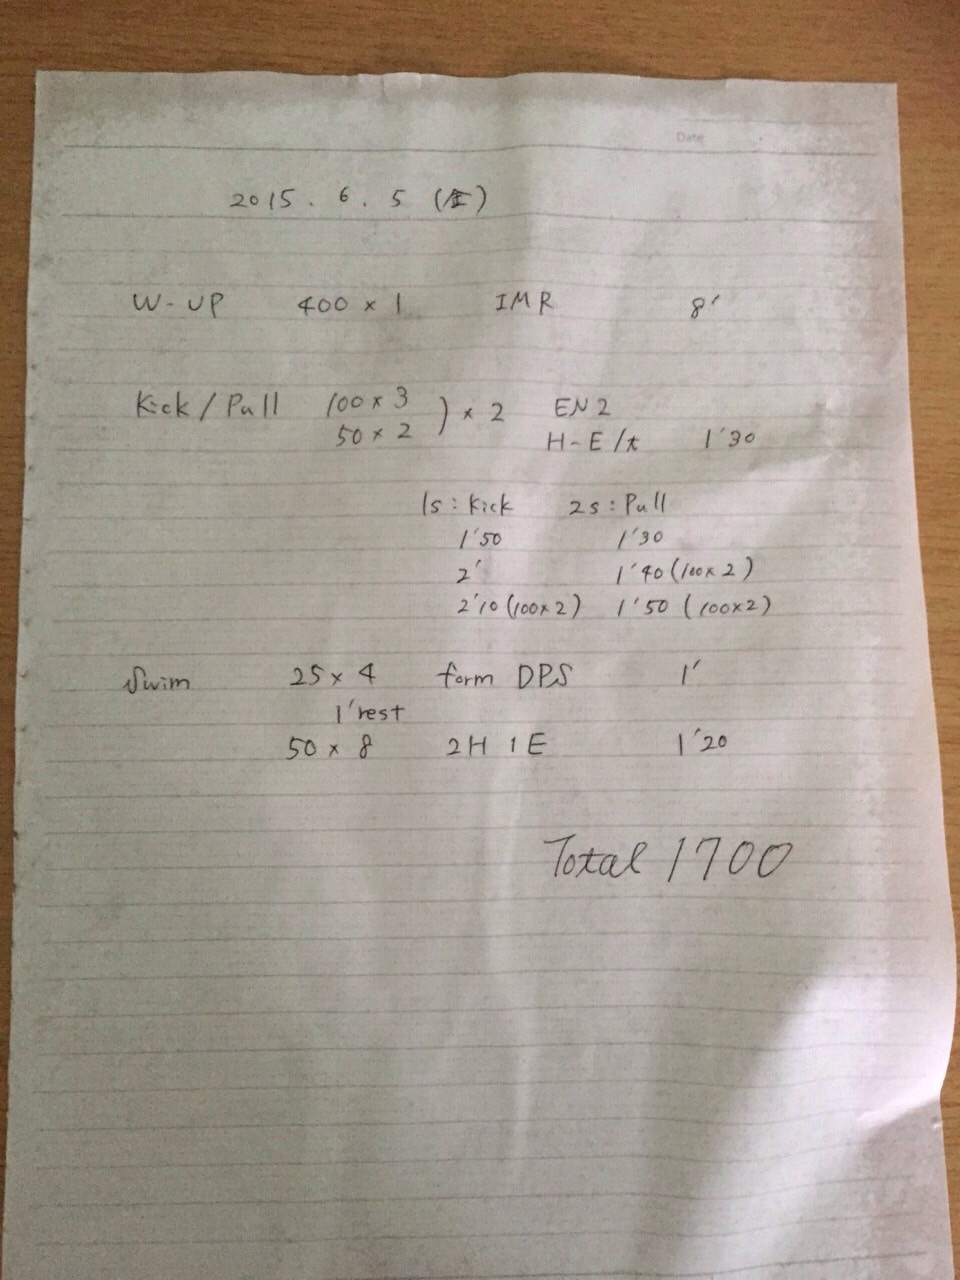 Date
2015. 6. 5 (金)
W-UP 400 × 1 IMR 8'
Kick/Pull 100 × 3 ) × 2 EN2
50 × 2 H-E/t 1'30
1s: Kick 2s: Pull
1'50 1'30
2' 1'40 (100×2)
2'10 (100×2) 1'50 (100×2)
Swim 25 × 4 form DPS 1'
1' rest
50 × 8 2H 1E 1'20
Total 1700